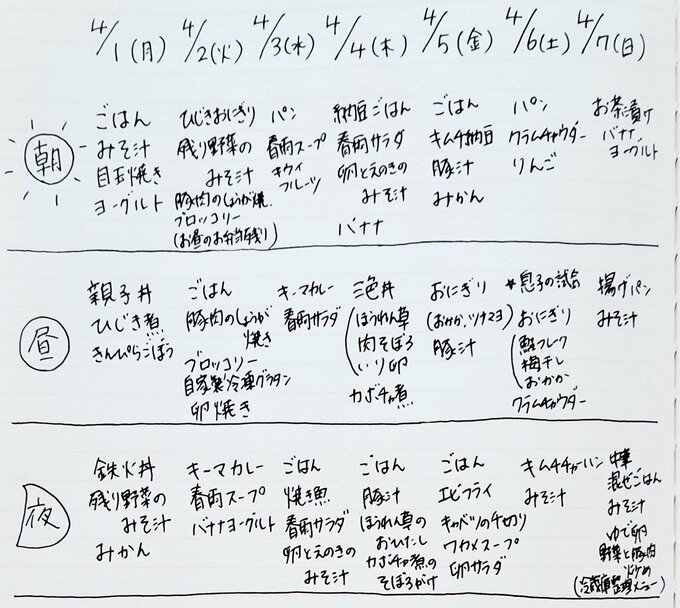 4/1(月) 4/2(火) 4/3(水) 4/4(木) 4/5(金) 4/6(土) 4/7(日)
朝
ごはん
みそ汁
目玉焼き
ヨーグルト
ひじきおにぎり
残り野菜の
みそ汁
豚肉のしょうが焼
ブロッコリー
(お昼のお弁当残り)
パン
春雨スープ
キウイ
フルーツ
納豆ごはん
春雨サラダ
卵とえのきの
みそ汁
バナナ
ごはん
キムチ納豆
豚汁
みかん
パン
クラムチャウダー
りんご
お茶漬け
バナナ
ヨーグルト
昼
親子丼
ひじき煮
きんぴらごぼう
ごはん
豚肉のしょうが
焼き
ブロッコリー
自家製冷凍グラタン
卵焼き
キーマカレー
春雨サラダ
三色丼
ほうれん草
肉そぼろ
いり卵
カボチャ煮
おにぎり
(おかか、ツナマヨ)
豚汁
*息子の試合
おにぎり
鮭フレーク
梅干し
おかか
クラムチャウダー
揚げパン
みそ汁
夜
鉄火丼
残り野菜の
みそ汁
みかん
キーマカレー
春雨スープ
バナナヨーグルト
ごはん
焼き魚
春雨サラダ
卵とえのきの
みそ汁
ごはん
豚汁
ほうれん草の
おひたし
カボチャ煮の
そぼろがけ
ごはん
エビフライ
キャベツの千切り
ワカメスープ
卵サラダ
キムチチャーハン
みそ汁
中華
混ぜごはん
みそ汁
ゆで卵
野菜と豚肉
炒め
(冷蔵庫整理メニュー)